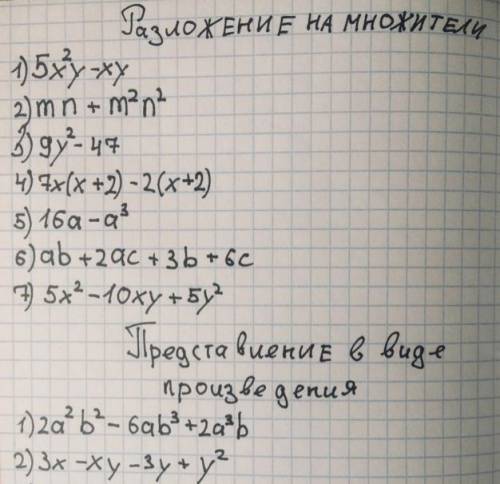 Разложение на множители
1) 5x²y - xy
2) mn + m²n²
3) 9y² - 47
4) 7x(x+2) - 2(x+2)
5) 16a - a³
6) ab + 2ac + 3b + 6c
7) 5x² - 10xy + 5y²
Представление в виде
произведения
1) 2a²b² - 6ab³ + 2a³b
2) 3x - xy - 3y + y²